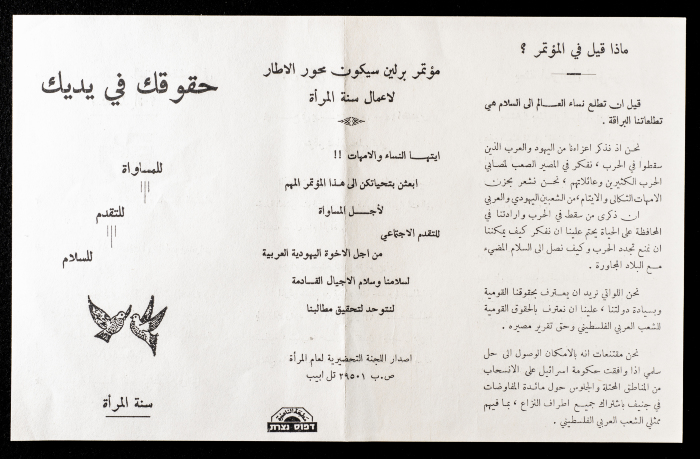 ماذا قيل في المؤتمر ؟
قيل ان تطلع نساء العـــالم الى السلام هي
تطلعاتنا البراقة .
نحن اذ نذكر اعزاءنا من اليهود والعرب الذين
سقطوا في الحرب ، نفكر في المصير الصعب لمصابي
الحرب الكثيرين وعائلاتهم ، نحـن نشعر بحزن
الامهات الثكالى والايتام ، من الشعبين اليهودي والعربي
ان ذكرى من سقط في الحرب وارادتنا في
المحافظة على الحياة يحتم علينا ان نفكر كيف يمكننا
ان نمنع تجدد الحرب وكيف نصل الى السلام المضيء
مـع البلاد المجاورة .
نحن اللواتي نريد ان يعـترف بحقوقنا القومية
وبسيادة دولتنا ، علينا ان نعترف بالحقوق القومية
للشعب العربي الفلسطيني وحق تقرير مصيره .
نحن مقتنعات انه بالامكان الوصول الى حل
سلمي اذا وافقت حكومة اسرائيل على الانسحاب
من المناطق المحتلة والجلوس حول مائدة المفاوضات
في جنيف باشتراك جميـع اطراف النزاع ، بمـا فيهم
ممثلي الشعب العربي الفلسطيني .
مؤتمر برلين سيكون محور الاطار
لاعمال سنة المرأة
ايتهـا النساء والامهات !!
ابعثن بتحياتكن الى هـذا المؤتمر المهم
لاجــل المساواة
للتقدم الاجتماعي
من اجل الاخوة اليهودية العربية
لسلامنا وسلام الاجيال القـادمة
لنتوحد لتحقيق مطالبنا
اصدار اللجنة التحضيرية لعام المرأة
ص.ب ٢٩٥٠١ تل ابيب
דפוס נצרת
حقوقك في يديك
للمساواة
للتقدم
للسلام
سنة المرأة